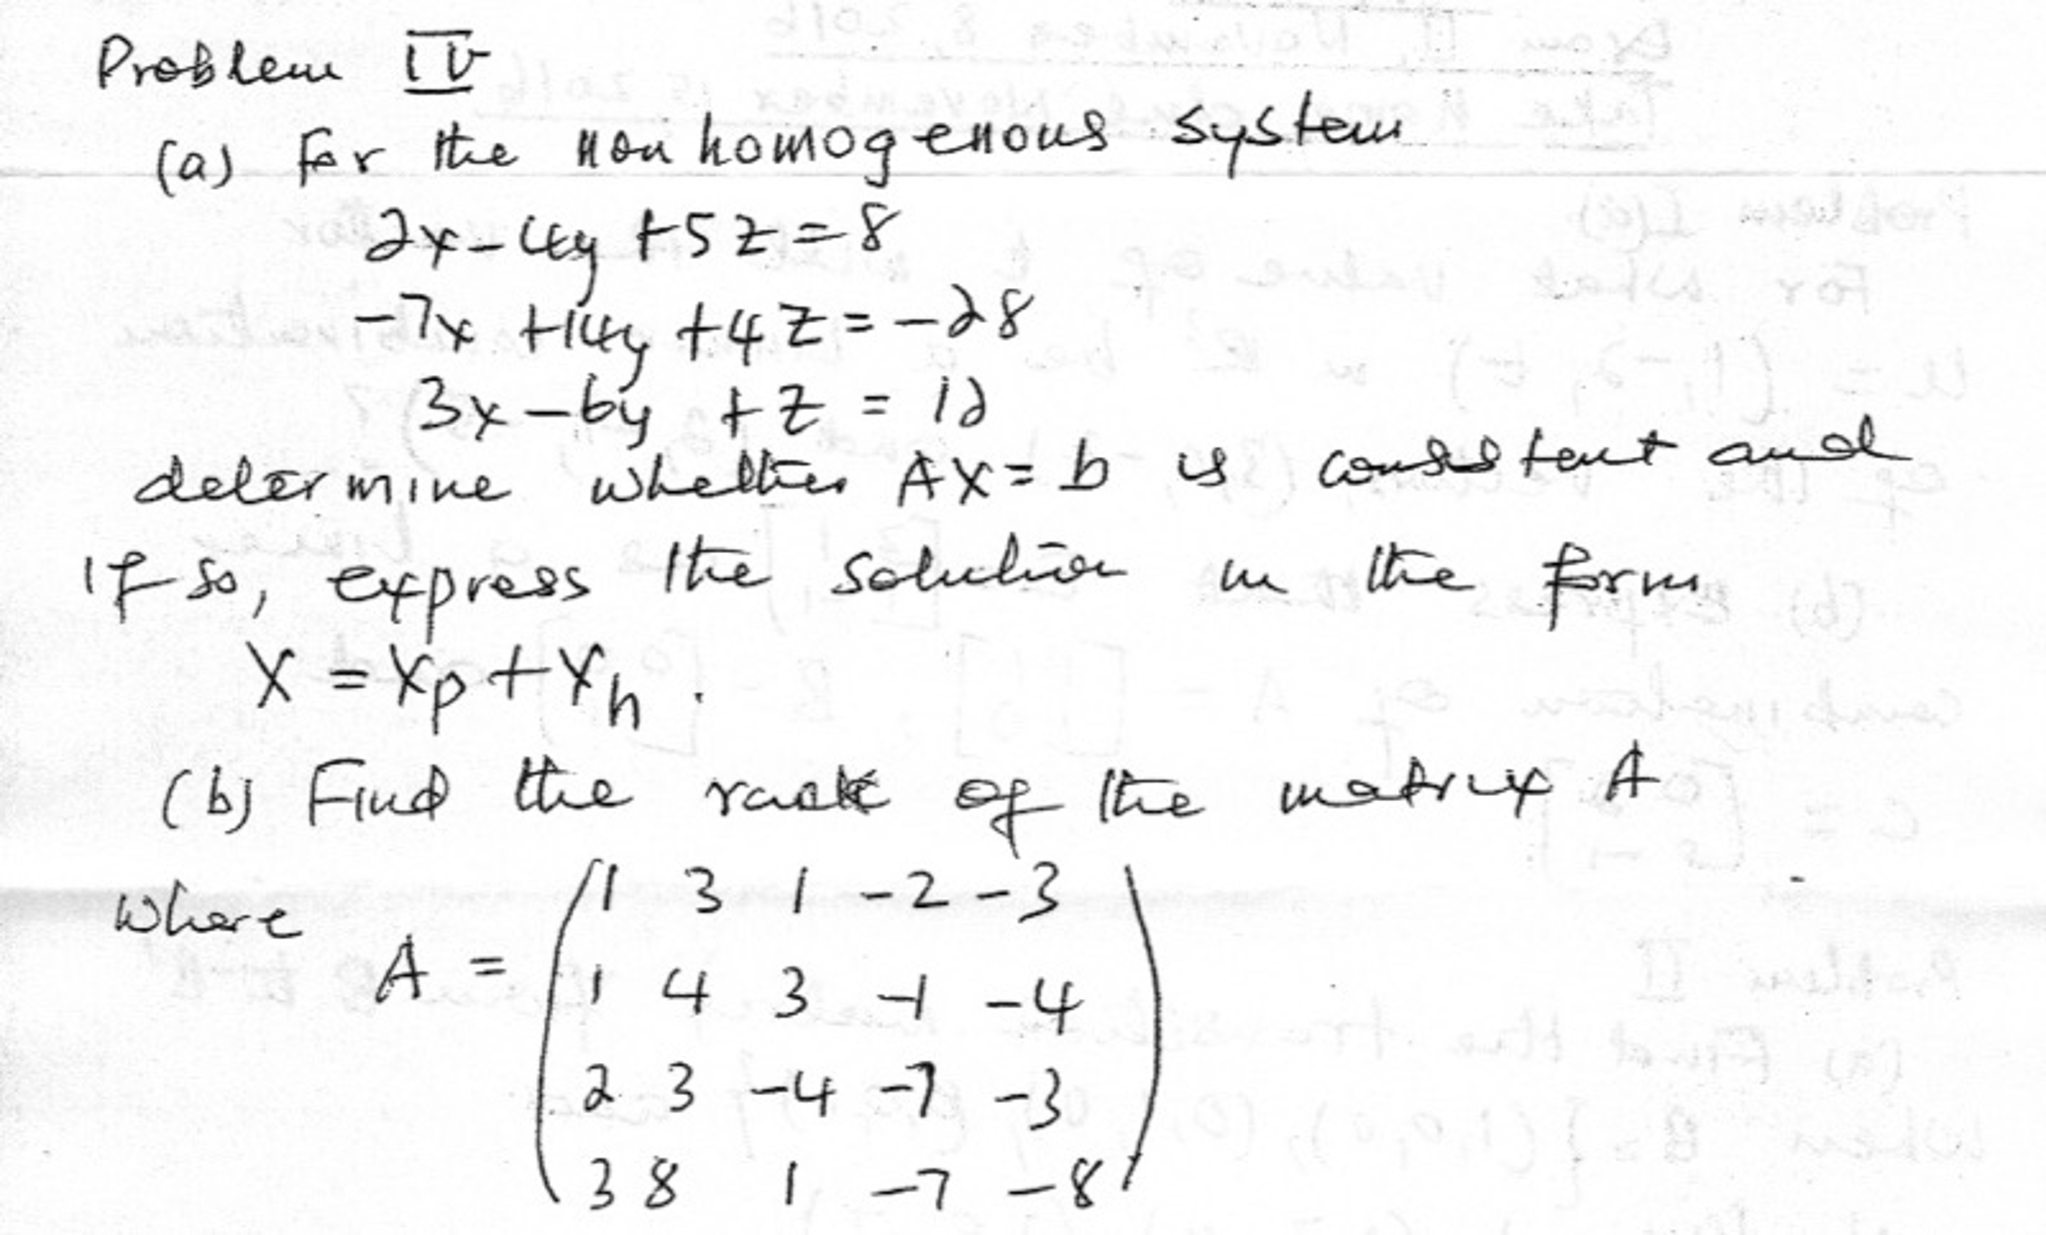 Problem IV
(a) For the non homogenous system
2x - 4y + 5z = 8
-7x + 14y + 4z = -28
3x - 6y + z = 12
determine whether AX = b is consistent and
If so, express the solution in the form
X = Xp + Xh.
(b) Find the rank of the matrix A
where A = ( 1 3 1 -2 -3
1 4 3 -1 -4
2 3 -4 -7 -3
3 8 1 -7 -8 )